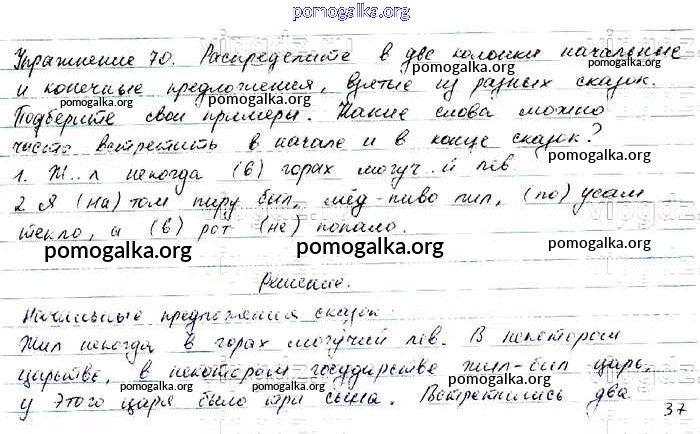 pomogalka.org
Упражнение 70. Распределите в две колонки начальные
и конечные предложения, взятые из разных сказок.
pomogalka.org pomogalka.org
Подберите свои примеры. Какие слова можно
pomogalka.org
часто встретить в начале и в конце сказок?
pomogalka.org
1. Ж..л некогда (в) горах могуч..й лев.
2 Я (на) том пиру был, мёд-пиво пил, (по) усам
текло, а (в) рот (не) попало.
pomogalka.org pomogalka.org pomogalka.org
Решение.
Начальные предложения сказок:
Жил некогда в горах могучий лев. В некотором
царстве, в некотором государстве жил-был царь,
pomogalka.org pomogalka.org pomogalka.org
у этого царя было три сына. Встретились два
37